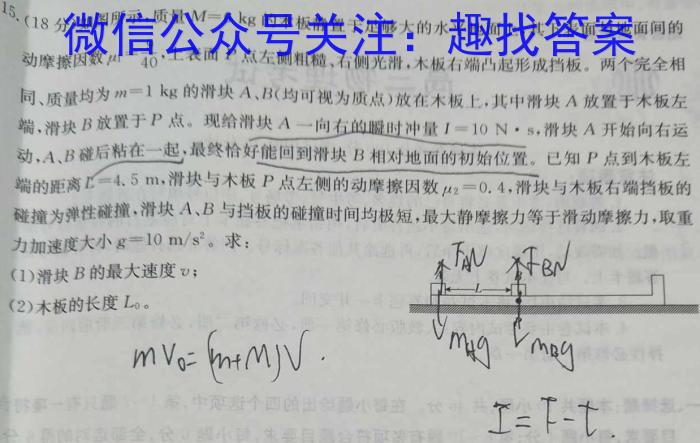 15.(18分)
微信公众号关注：趣找答案
动摩擦因数μ 40,上表面 点左侧粗糙、右侧光滑,木板右端凸起形成挡板。两个完全相
同、质量均为m=1 kg的滑块A、B(均可视为质点)放在木板上,其中滑块A放置于木板左
端,滑块B放置于P点。现给滑块A一向右的瞬时冲量I=10 N·s,滑块A开始向右运
动,A、B碰后粘在一起,最终恰好能回到滑块B相对地面的初始位置。已知P点到木板左
端的距离L=4.5 m,滑块与木板P点左侧的动摩擦因数μ2=0.4,滑块与木板右端挡板的
碰撞为弹性碰撞,滑块A、B与挡板的碰撞时间均极短,最大静摩擦力等于滑动摩擦力,取重
力加速度大小g=10 m/s²。求:
(1)滑块B的最大速度v;
(2)木板的长度L₀。
FAN FBN
L
mAg mBg
mV₀=(m+M)V.
I=F-t.